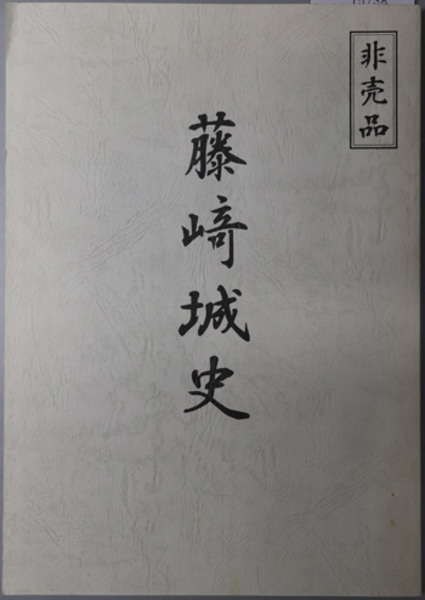 非売品
藤﨑城史